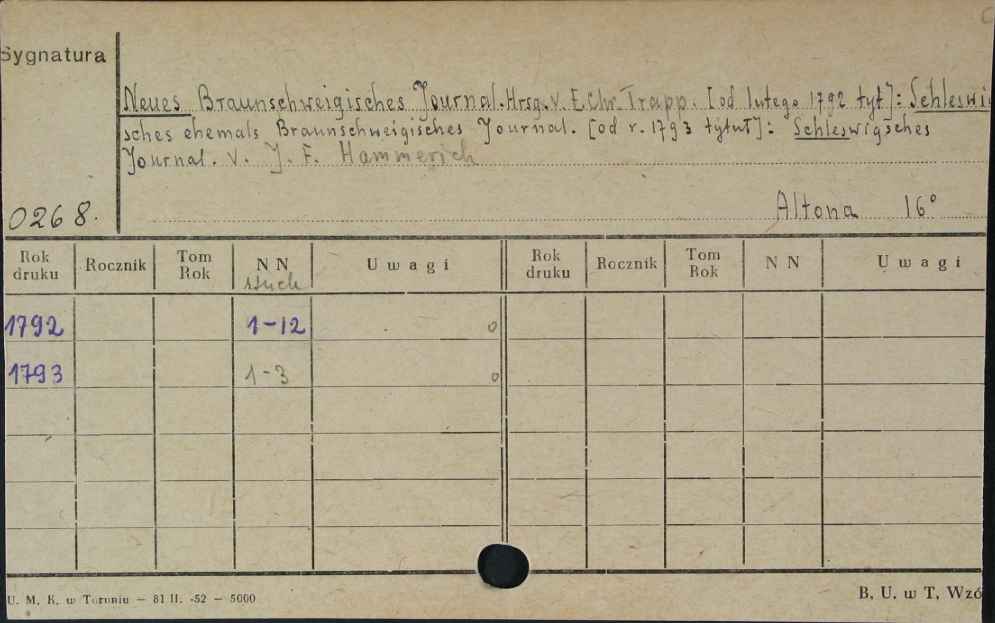 Sygnatura
Neues Braunschweigisches Journal. Hrsg. v. E. Chr. Trapp. [od lutego 1792 tyt]: Schleswi
sches ehemals Braunschweigisches Journal. [od r. 1793 tytuł]: Schleswigsches
Journal. v. J. F. Hammerich
0268.
Altona 16°
Rok druku Rocznik Tom Rok NN Uwagi Rok druku Rocznik Tom Rok NN Uwagi
1792 1-12 o
1793 1-3 o
U. M. K. w Toruniu — 81 II. -52 — 5000
B. U. w T, Wzó